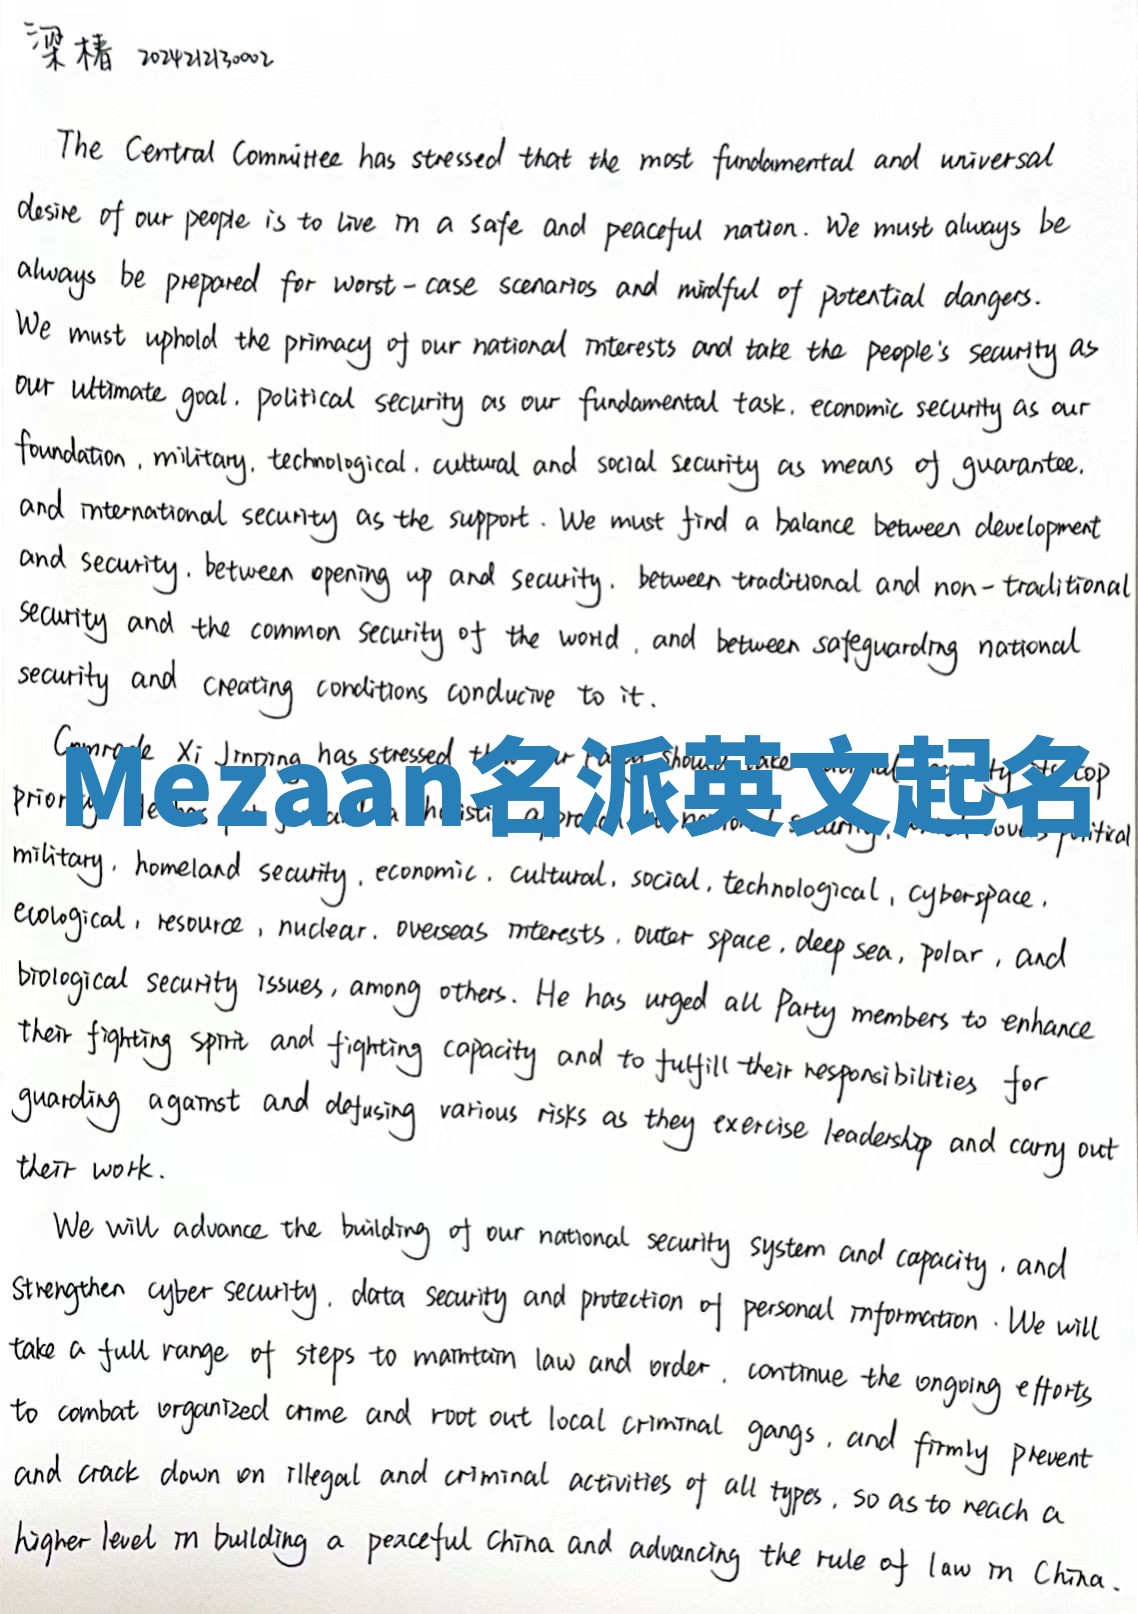 梁椿 2024212130002
The Central Committee has stressed that the most fundamental and universal
desire of our people is to live in a safe and peaceful nation. We must always be
always be prepared for worst-case scenarios and mindful of potential dangers.
We must uphold the primacy of our national interests and take the people's security as
our ultimate goal, political security as our fundamental task, economic security as our
foundation, military, technological, cultural and social security as means of guarantee,
and international security as the support. We must find a balance between development
and security, between opening up and security, between traditional and non-traditional
security and the common security of the world, and between safeguarding national
security and creating conditions conducive to it.
Comrade Xi Jinping has stressed should take top
Mezaan名派英文起名
priority holistic approach national security, which covers political
military, homeland security, economic, cultural, social, technological, cyberspace,
ecological, resource, nuclear, overseas interests, outer space, deep sea, polar, and
biological security issues, among others. He has urged all Party members to enhance
their fighting spirit and fighting capacity and to fulfill their responsibilities for
guarding against and defusing various risks as they exercise leadership and carry out
their work.
We will advance the building of our national security system and capacity, and
strengthen cyber security, data security and protection of personal information. We will
take a full range of steps to maintain law and order, continue the ongoing efforts
to combat organized crime and root out local criminal gangs, and firmly prevent
and crack down on illegal and criminal activities of all types, so as to reach a
higher level in building a peaceful China and advancing the rule of law in China.